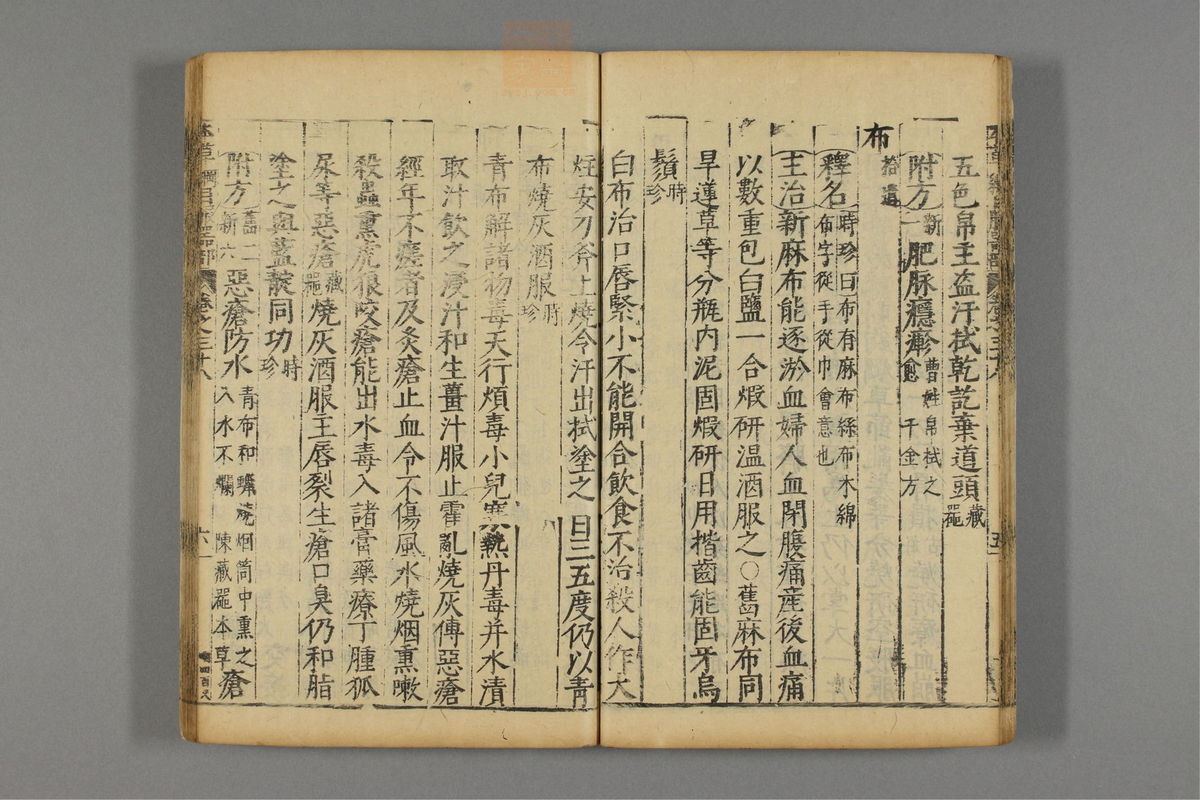 五色帛主盗汗拭乾訖棄道頭藏噐
附方新一肥脉癮𤺋曹姓帛拭之愈 千金方
布拾遺
釋名時珍曰布有麻布絲布木綿布字從手從巾會意也
主治新麻布能逐瘀血婦人血閉腹痛産後血痛
以數重包白鹽一合煅研温酒服之○舊麻布同
旱蓮草等分瓶内泥固煅研日用揩齒能固牙烏
鬚時珍
白布治口唇緊小不能開合飲食不治殺人作大
炷安刀斧上燒令汗出拭塗之日三五度仍以青
布燒灰酒服時珍
青布解諸物毒天行煩毒小兒寒熱丹毒并水漬
取汁飲之浸汁和生薑汁服止霍亂燒灰傅惡瘡
經年不瘥者及灸瘡止血令不傷風水燒烟熏嗽
殺蟲熏虎狼咬瘡能出水毒入諸膏藥療丁腫狐
尿等惡瘡藏噐燒灰酒服主唇裂生瘡口臭仍和脂
塗之與藍靛同功時珍
附方舊二新六惡瘡防水青布和蠟燒烟筒中熏之入水不爛 陳藏噐本草瘡